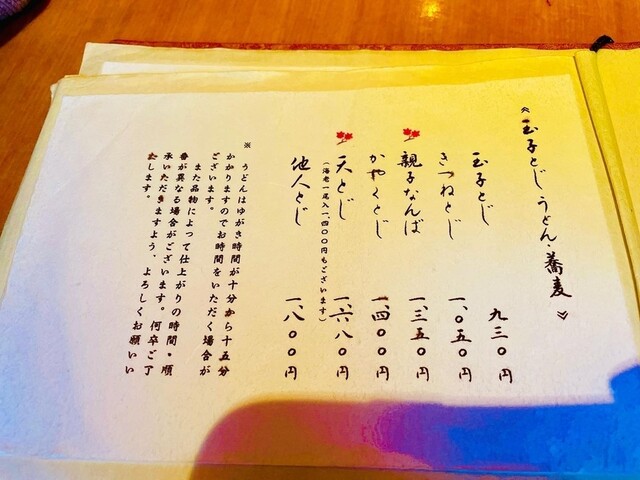 ≪玉子とじうどん・蕎麦≫
玉子とじ 九三〇円
きつねとじ 一、〇五〇円
親子なんば 一、三五〇円
かやくとじ 一、四〇〇円
天とじ 一、六八〇円
(海老一尾入一、四〇〇円もございます)
他人とじ 一、八〇〇円
※ うどんはゆがき時間が十分から十五分
かかりますのでお時間をいただく場合が
ございます。
また品物によって仕上がりの時間・順
番が異なる場合がございます。何卒ご了
承いただきますよう、よろしくお願いい
たします。